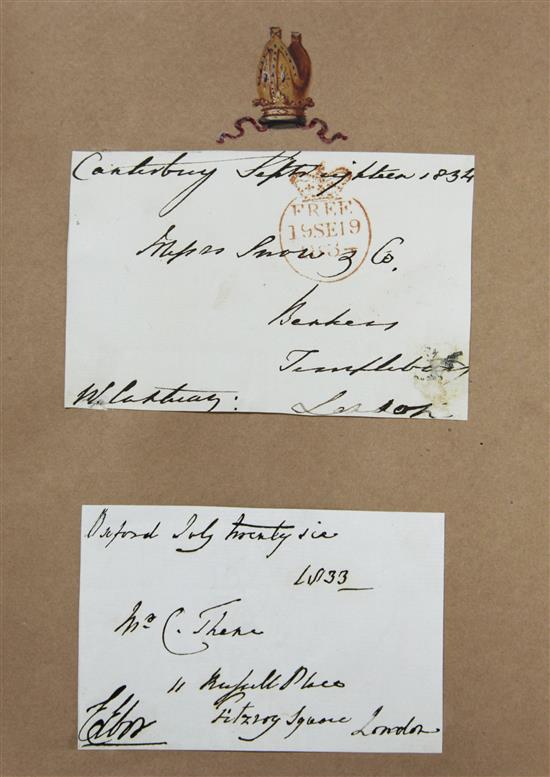 Canterbury Septr eighteen 1834
FREE
19SE19
Messrs Snow & Co.
Bankers
Templebar
W. Cantuar:
London
Oxford July twenty six
1833
Mr C. Thene
11 Russell Place
Fitzroy Square London
E Ebor